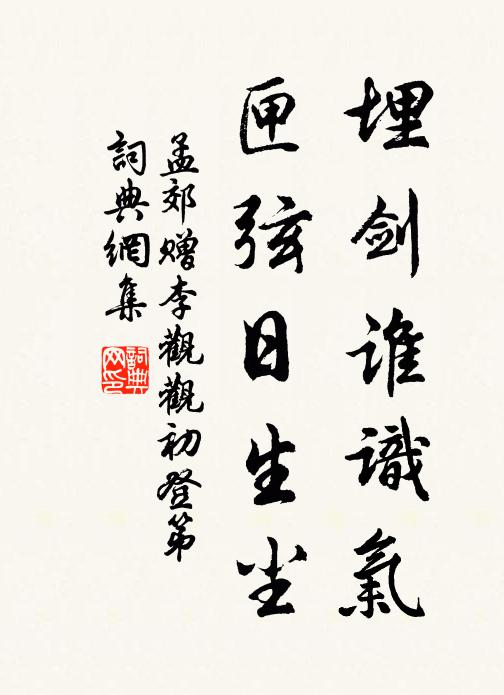 埋剑谁識氣
匣弦日生尘
孟郊赠李觀觀初登第
詞典網集
詞典
网印